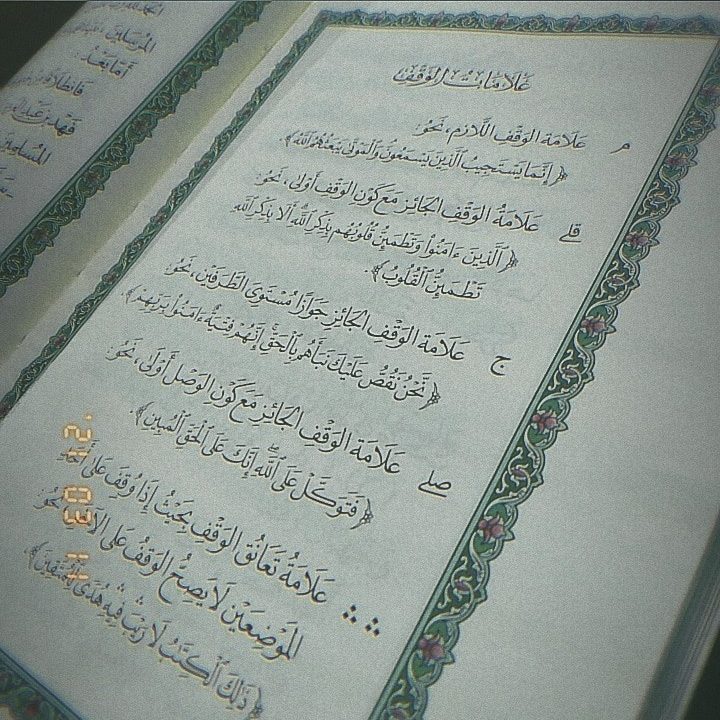 عَلَامَاتُ الوَقْفِ
م عَلَامَة الوَقْفِ اللَّازِمِ، نَحْوُ:
﴿إِنَّمَا يَسْتَجِيبُ ٱلَّذِينَ يَسْمَعُونَ وَٱلْمَوْتَىٰ يَبْعَثُهُمُ ٱللَّهُ﴾.
قلے عَلَامَةُ الوَقْفِ الجَائِزِ مَعَ كَوْنِ الوَقْفِ أَوْلَىٰ، نَحْوُ:
﴿ٱلَّذِينَ ءَامَنُوا۟ وَتَطْمَئِنُّ قُلُوبُهُم بِذِكْرِ ٱللَّهِ أَلَا بِذِكْرِ ٱللَّهِ
تَطْمَئِنُّ ٱلْقُلُوبُ﴾.
ج عَلَامَة الوَقْفِ الجَائِزِ جَوَازًا مُسْتَوِىَ الطَّرَفَيْن، نَحْوُ:
﴿نَّحْنُ نَقُصُّ عَلَيْكَ نَبَأَهُم بِٱلْحَقِّ ۚ إِنَّهُمْ فِتْيَةٌ ءَامَنُوا۟ بِرَبِّهِمْ﴾.
صلے عَلَامَة الوَقْفِ الجَائِزِ مَعَ كَوْنِ الوَصْل أَوْلَىٰ، نَحْوُ:
﴿فَتَوَكَّلْ عَلَى ٱللَّهِ ۖ إِنَّكَ عَلَى ٱلْحَقِّ ٱلْمُبِينِ﴾.
∴ ∴ عَلَامَةُ تَعَانُق الوَقْفِ بِحَيْثُ إِذَا وُقِفَ عَلَىٰ أَحَدِ
المَوْضِعَيْن لَا يَصِحُّ الوَقْفُ عَلَى الآخَرِ، نَحْوُ:
﴿ذَٰلِكَ ٱلْكِتَٰبُ لَا رَيْبَ ۛ فِيهِ ۛ هُدًى لِّلْمُتَّقِينَ﴾.
المُرْسَلِينَ
أَمَّا بَعْدُ:
فَانْطِلَاقًا
فَهْد بْن عَبْد
المُسْلِمِينَ